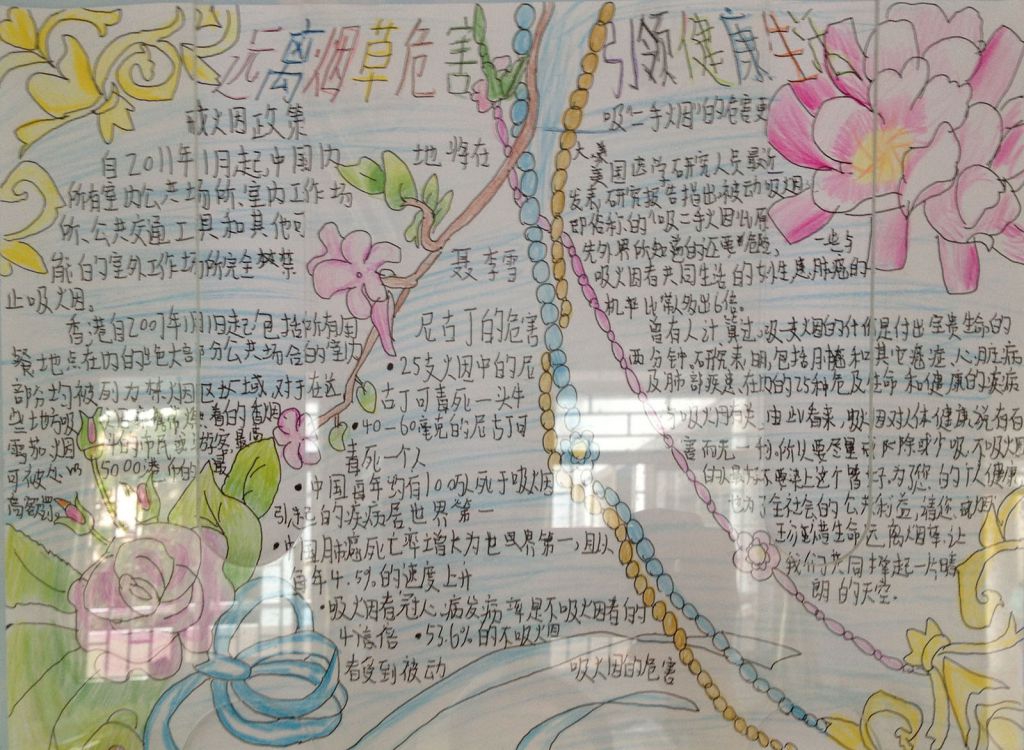 远离烟草危害
引领健康生活
戒烟政策
自2011年1月起,中国内地将在
所有室内公共场所、室内工作场
所、公共交通工具和其他可
能的室外工作场所完全禁
止吸烟。
香港自2007年1月1日起,包括所有因
餐地点在内的绝大部分公共场合的室内
部分均被列为禁烟区域,对于在这
些地方吸 着的香烟
雪茄、烟
可被处以 5000港币的
高额罚
聂李雪
尼古丁的危害
•25支烟中的尼
古丁可毒死一头牛
•40-60毫克的尼古丁可
毒死一个人
•中国百年均有100万人死于吸烟
引起的疾病居世界第一
•中国肺癌死亡率增长为世界第一,且以
每年4.5%的速度上升
•吸烟者冠心病发病率是不吸烟者的
4倍 •53.6%的不吸烟
者受到被动
吸烟的危害
吸"二手烟"的危害更
大
美国医学研究人员最近
发表研究报告指出被动吸烟,
即俗称的"吸二手烟"比原
先外界所知道的还要危险, 一些与
吸烟者共同生活的女性,患肺癌的
机率比常人多出6倍。
曾有人计算过:吸一支烟的代价是付出宝贵生命的
两分钟。研究表明,包括肺癌和其它癌症、心脏病
及肺部疾患在内的25种危及生命和健康的疾病
与吸烟有关。由此看来,吸烟对人体健康说存有百
害而无一利的,所以要尽量 除或少吸,不吸烟
的 不要染上这个 ,为了您的个人健康
也为了全社会的公共利益,请您戒烟
珍惜生命远离烟草,让
我们共同撑起一片晴
朗的天空。